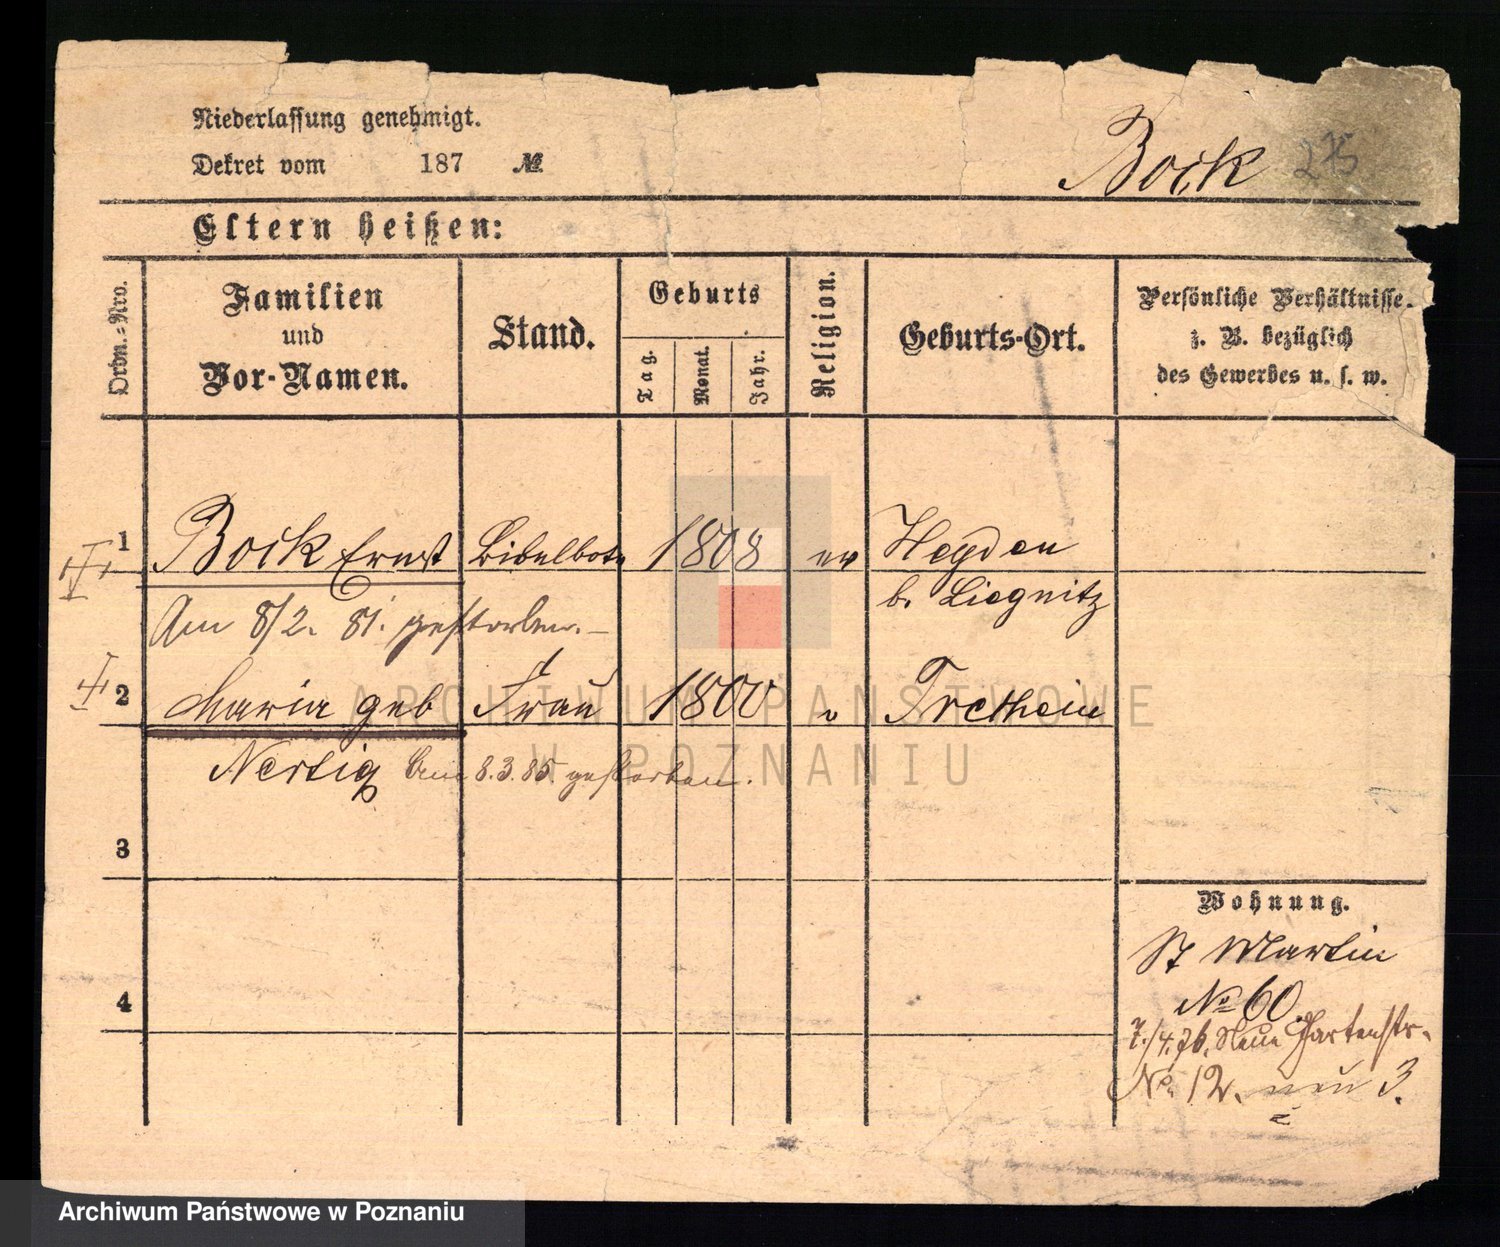 Niederlassung genehmigt.
Dekret vom 187 №
Bock 275
Eltern heißen:
Ordn.-Nro.
Familien
und
Vor-Namen.
Stand.
Geburts
Tag.
Monat.
Jahr.
Religion.
Geburts-Ort.
Persönliche Verhältnisse.
z. B. bezüglich
des Gewerbes u. s. w.
1 Bock Ernst Bibelbote 1808 ev Heyden
b. Liegnitz
Am 8/2. 81. gestorben.—
2 Maria geb Frau 1800 Tretthein
Nertig Am 8.3.85. gestorben.
3
4
Wohnung.
St Martin
No 60
7./4.76. Neue Gartenstr.
No 12. neu 3.
ARCHIWUM PAŃSTWOWE
W POZNANIU
Archiwum Państwowe w Poznaniu